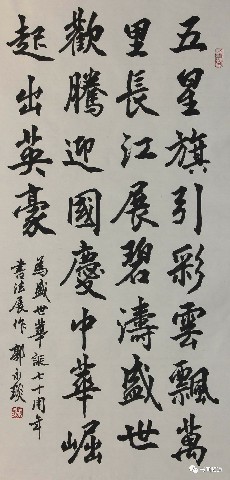 五星旗引彩雲飄萬
里長江展碧濤盛世
歡騰迎國慶中華崛
起出英豪
為盛世華誕七十周年
書法展作 郭永琰